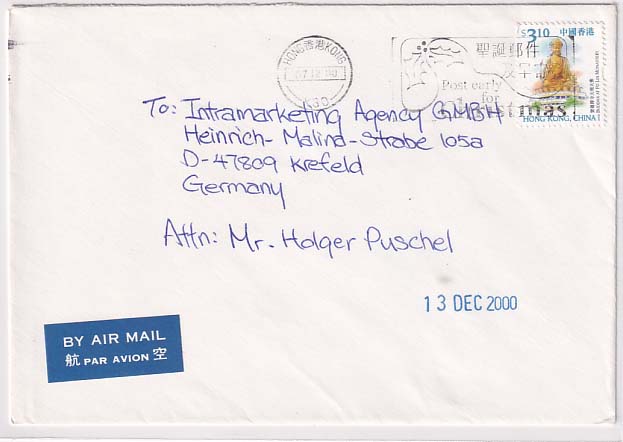 $3.10 中國香港
HONG 香港 KONG
07.12.00
聖誕郵件
及早
Post early
for
Christmas
HONG KONG, CHINA
To: Intramarketing Agency GMBH
Heinrich-Malina-Strabe 105a
D-47809 Krefeld
Germany
Attn: Mr. Holger Puschel
13 DEC 2000
BY AIR MAIL
航 PAR AVION 空